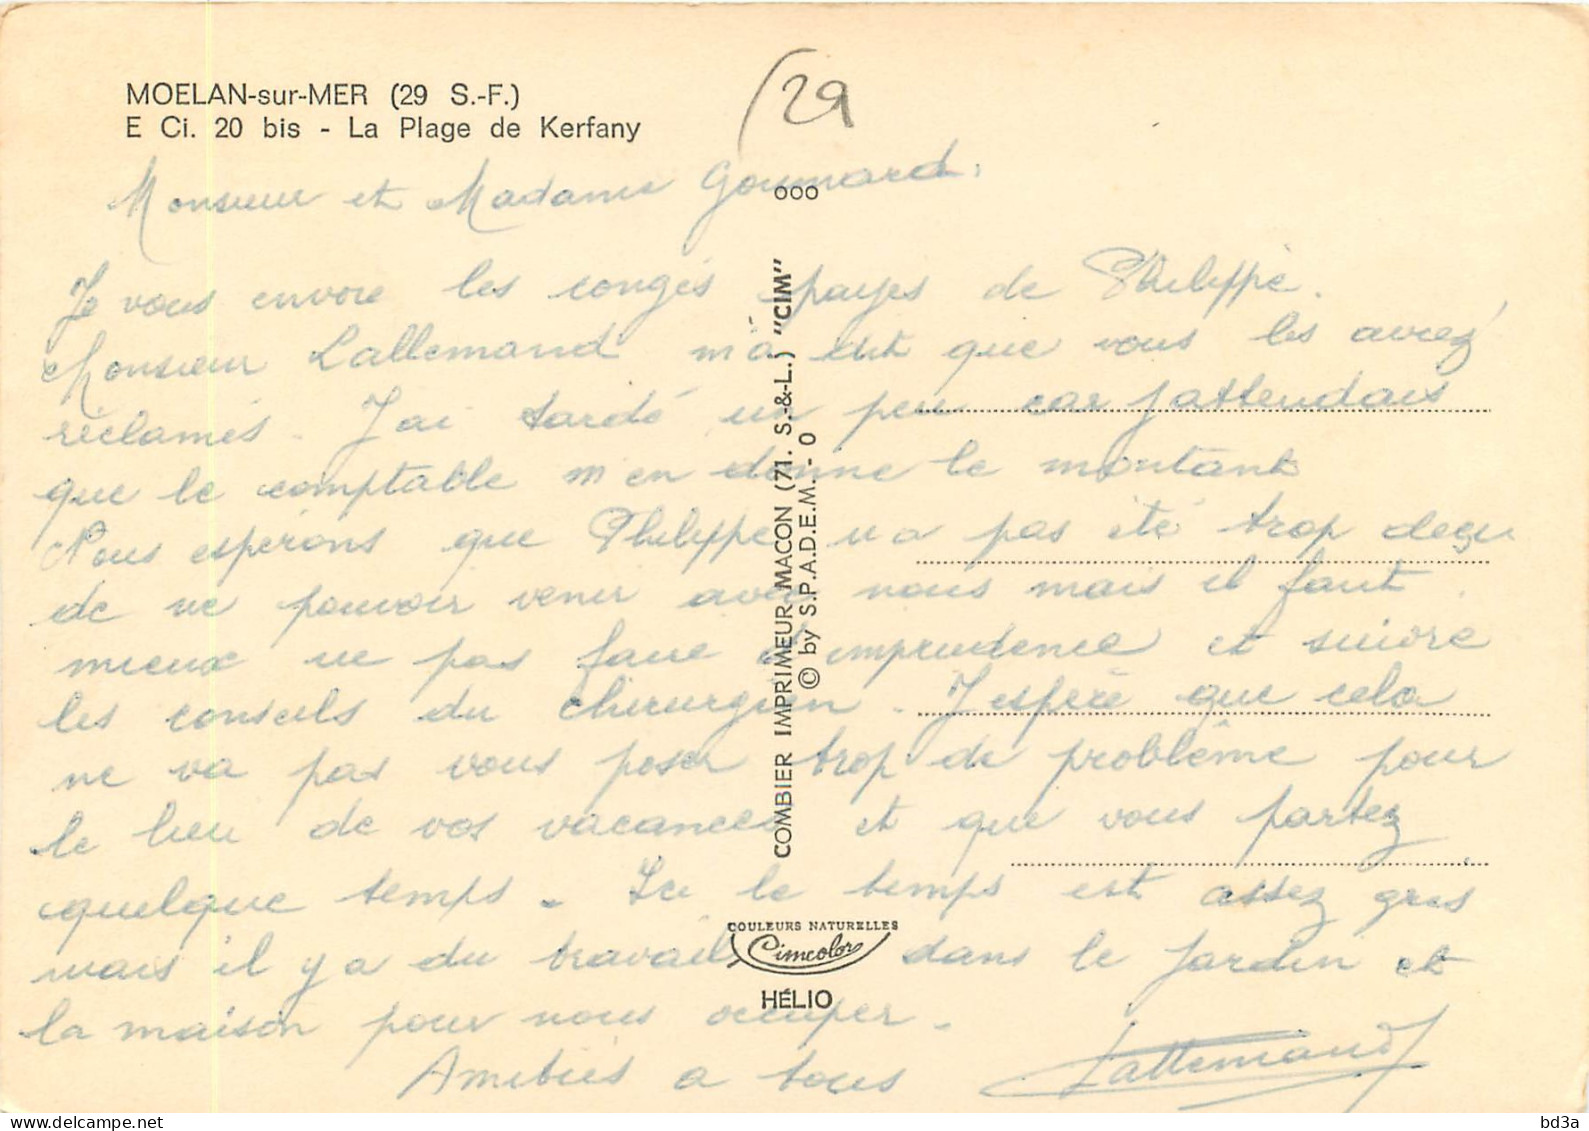 MOELAN-sur-MER (29 S.-F.)
E Ci. 20 bis - La Plage de Kerfany
(29
Monsieur et Madame Goumard.
Je vous envoie les congés payes de Philippe.
Monsieur Lallemand m'a dit que vous les aviez
réclamés. J'ai tardé un peu car j'attendais
que le comptable m'en donne le montant
Nous espérons que Philippe n'a pas été trop deçu
de ne pouvoir venir avec nous mais il faut
mieux ne pas faire d'imprudence et suivre
les conseils du chirurgien. J'espère que cela
ne va pas vous poser trop de problême pour
le lieu de vos vacances et que vous partez
quelque temps. Ici le temps est assez gris
mais il y a du travail dans le jardin et
la maison pour nous occuper.
Amitiés a tous Lallemand
ooo
COMBIER IMPRIMEUR MACON (71. S.-&-L.) "CIM"
© by S.P.A.D.E.M. - O
COULEURS NATURELLES
Cimcolor
HÉLIO
delcampe.net
bd3a